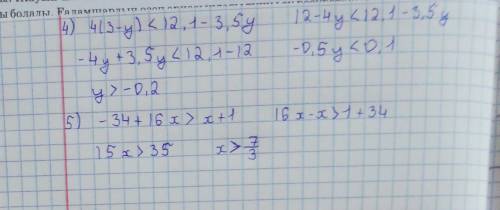 ы болады. Ғаламшардың
4) 4(3-y)<12,1-3,5y 12-4y<12,1-3,5y
-4y+3,5y<12,1-12 -0,5y<0,1
y>-0,2
5) -34+16x>x+1 16x-x>1+34
15x>35 x>7/3